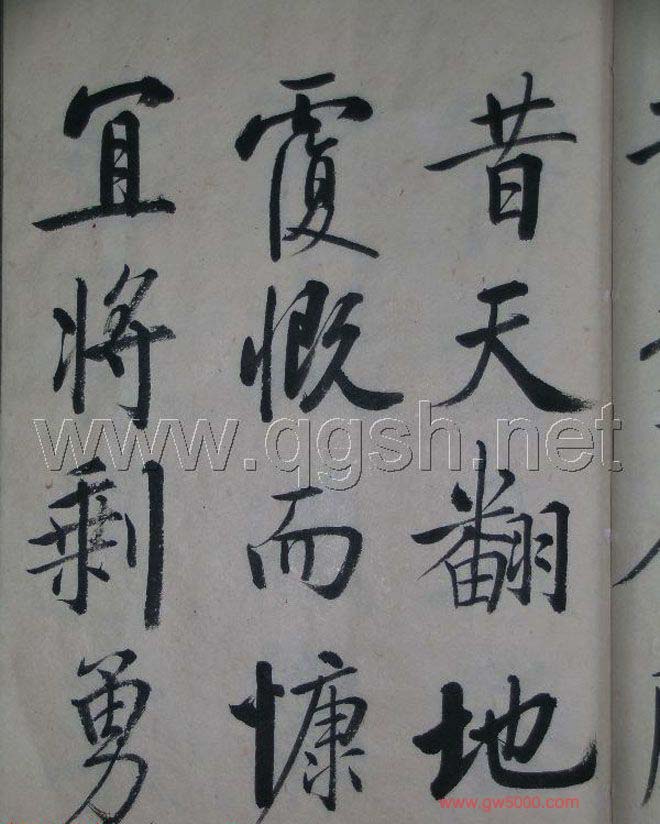 昔天翻地
覆慨而慷
宜将剩勇
www.qgsh.net
www.gw5000.com